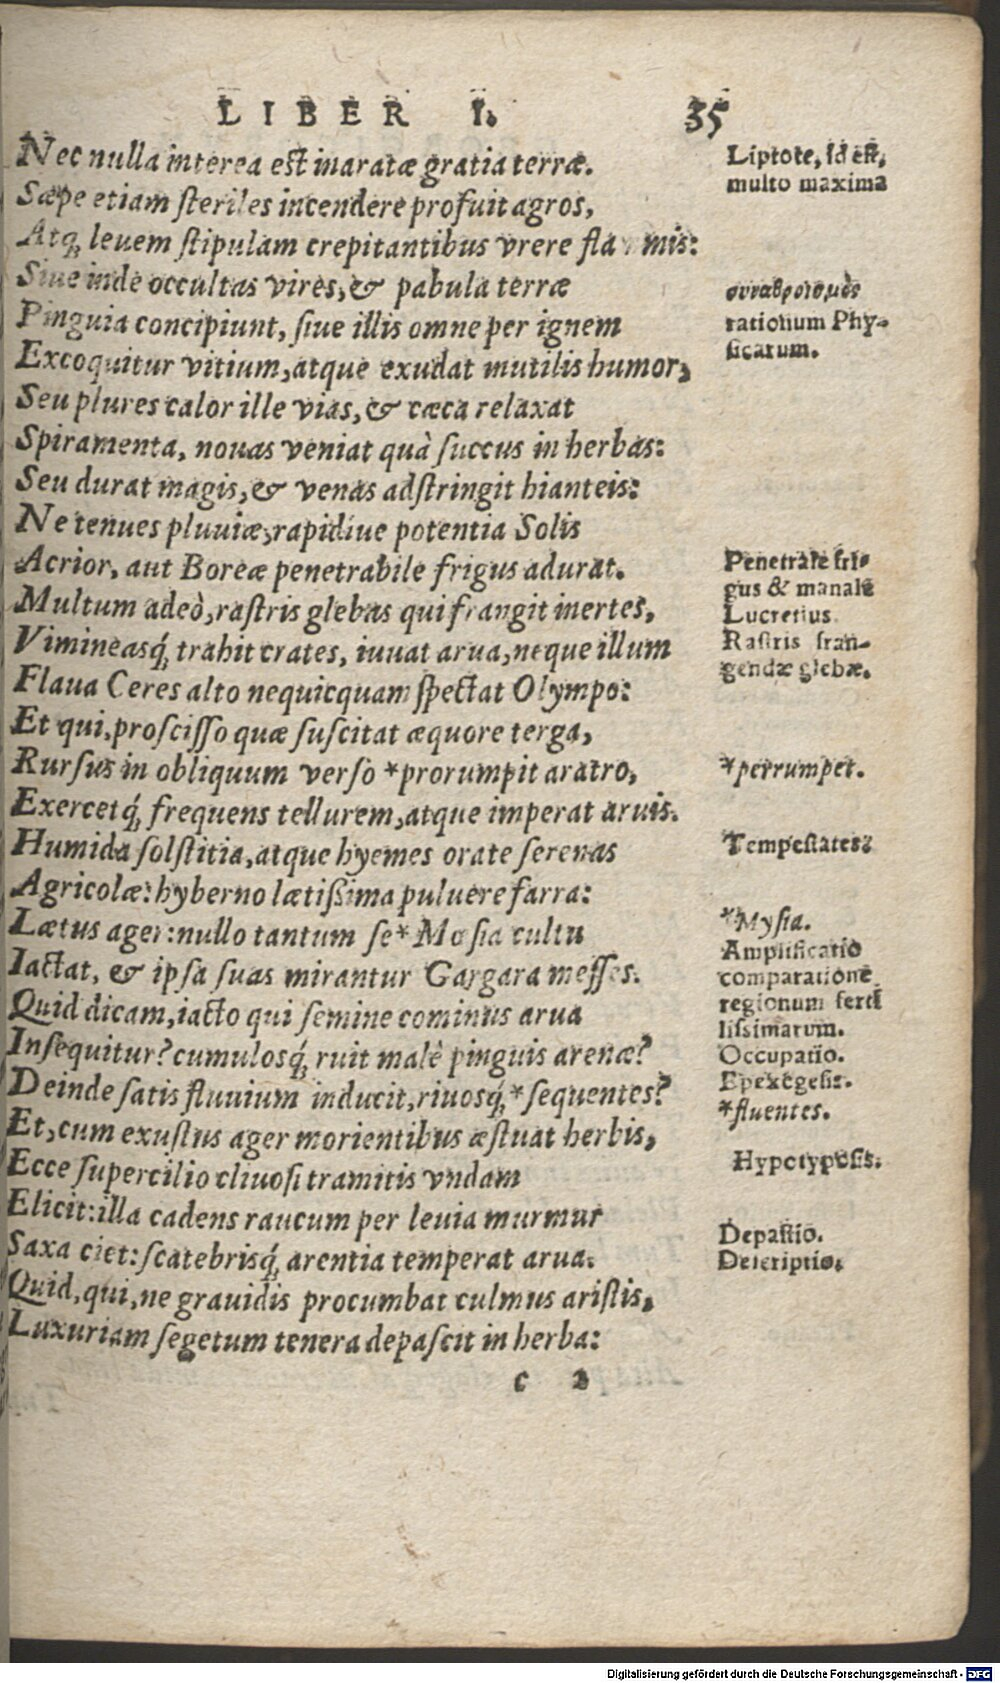 LIBER I. 35
Nec nulla interea est inaratæ gratia terræ.
Sæpe etiam steriles incendere profuit agros,
Atq; leuem stipulam crepitantibus vrere fla mis:
Siue inde occultas vires, & pabula terræ
Pinguia concipiunt, siue illis omne per ignem
Excoquitur vitium, atque exudat inutilis humor,
Seu plures calor ille vias, & cæca relaxat
Spiramenta, nouas veniat quà succus in herbas:
Seu durat magis, & venas adstringit hianteis:
Ne tenues pluuiæ, rapidiue potentia Solis
Acrior, aut Boreæ penetrabile frigus adurat.
Multum adeò, rastris glebas qui frangit inertes,
Vimineasq́; trahit crates, iuuat arua, neque illum
Flaua Ceres alto nequicquam spectat Olympo:
Et qui, proscisso quæ suscitat æquore terga,
Rursus in obliquum verso *prorumpit aratro,
Exercetq́; frequens tellurem, atque imperat aruis.
Humida solstitia, atque hyemes orate serenas
Agricolæ: hyberno lætißima puluere farra:
Lætus ager: nullo tantum se *Mœsia cultu
Iactat, & ipsa suas mirantur Gargara messes.
Quid dicam, iacto qui semine cominus arua
Insequitur? cumulosq́; ruit malè pinguis arenæ?
Deinde satis fluuium inducit, riuosq́; *sequentes?
Et, cum exustus ager morientibus æstuat herbis,
Ecce supercilio cliuosi tramitis vndam
Elicit: illa cadens raucum per leuia murmur
Saxa ciet: scatebrisq́; arentia temperat arua.
Quid, qui, ne grauidis procumbat culmus aristis,
Luxuriam segetum tenera depascit in herba:
c 2
Liptote, id est,
multo maxima
συναθροισμὸς
rationum Phy-
sicarum.
Penetrale fri-
gus & manale
Lucretius.
Rastris fran-
gendæ glebæ.
*perrumpet.
Tempestates:
*Mysia.
Amplificatio
comparatione
regionum ferti
lissimarum.
Occupatio.
Epexegesis.
*fluentes.
Hypotyposis.
Depastio.
Descriptio.
Digitalisierung gefördert durch die Deutsche Forschungsgemeinschaft - DFG